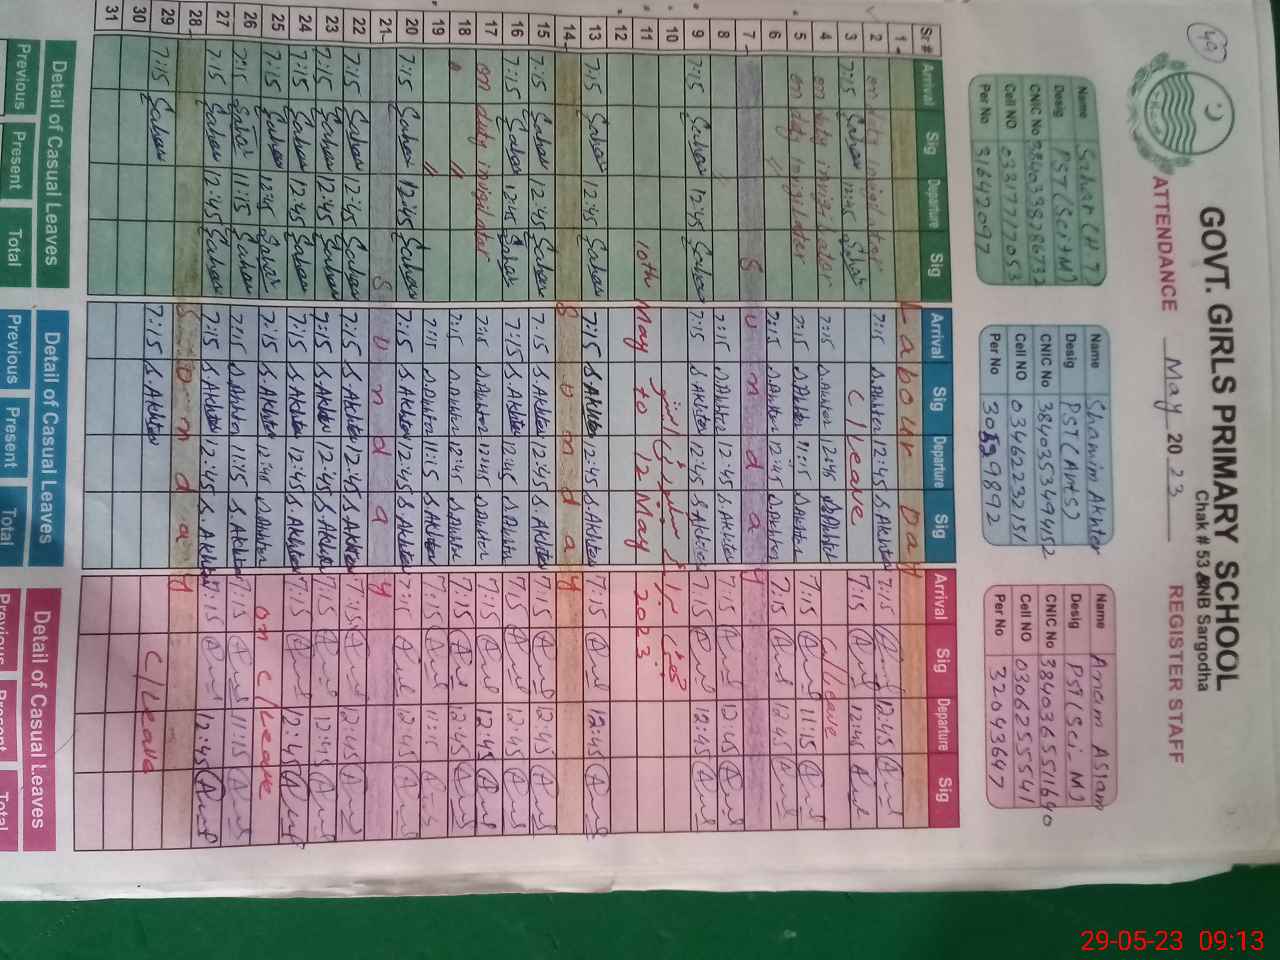 49
GOVT. GIRLS PRIMARY SCHOOL
Chak # 53 NB Sargodha
ATTENDANCE May 2023 REGISTER STAFF
Name Sahar CH 7
Desig PST (Sci+M)
CNIC No
Cell NO 03317717053
Per No 31642097
Name Shamim Akhter
Desig PST (Arts)
CNIC No 3840353494152
Cell NO 03462232151
Per No
Name Anam Aslam
Desig PST (Sci_M)
CNIC No 3840365511640
Cell NO 03062555541
Per No 32043647
Sr # Arrival Sig Departure Sig Arrival Sig Departure Sig Arrival Sig Departure Sig
1 Labour Day
2 on duty invigilator 7:15 S.Akhter 12:45 S.Akhter 7:15 12:45
3 7:15 Sahar 12:45 Sahar C/Leave 7:15 12:45
4 on duty invigilator 7:15 S.Akhter 12:45 S.Akhter C/Leave
5 on duty invigilator 7:15 S.Akhter 11:15 S.Akhter 7:15 11:15
6 " 7:15 S.Akhter 12:45 S.Akhter 7:15 12:45
7 Sunday
8 7:15 S.Akhter 12:45 S.Akhter 7:15 12:45
9 7:15 Sahar 12:45 Sahar 7:15 S.Akhter 12:45 S.Akhter 7:15 12:45
10
11 10th May to 12 May 2023
12
13 7:15 Sahar 12:45 Sahar 7:15 S.Akhter 12:45 S.Akhter 7:15 12:45
14 Sunday
15 7:15 Sahar 12:45 Sahar 7:15 S.Akhter 12:45 S.Akhter 7:15 12:45
16 7:15 Sahar 12:45 Sahar 7:15 S.Akhter 12:45 S.Akhter 7:15 12:45
17 on duty invigilator 7:15 S.Akhter 12:45 S.Akhter 7:15 12:45
18 " " 7:15 S.Akhter 12:45 S.Akhter 7:15 12:45
19 " 7:15 S.Akhter 11:15 S.Akhter 7:15 11:15
20 7:15 Sahar 12:45 Sahar 7:15 S.Akhter 12:45 S.Akhter 7:15 12:45
21 Sunday
22 7:15 Sahar 12:45 Sahar 7:15 S.Akhter 12:45 S.Akhter 7:15 12:45
23 7:15 Sahar 12:45 Sahar 7:15 S.Akhter 12:45 S.Akhter 7:15 12:45
24 7:15 Sahar 12:45 Sahar 7:15 S.Akhter 12:45 S.Akhter 7:15 12:45
25 7:15 Sahar 12:45 Sahar 7:15 S.Akhter 12:45 S.Akhter on C/Leave
26 7:15 Sahar 11:15 Sahar 7:15 S.Akhter 11:15 S.Akhter 7:15 11:15
27 7:15 Sahar 12:45 Sahar 7:15 S.Akhter 12:45 S.Akhter 7:15 12:45
28 Sunday
29 7:15 Sahar 7:15 S.Akhter C/Leave
30
31
Detail of Casual Leaves Detail of Casual Leaves Detail of Casual Leaves
Previous Present Total Previous Present Total Previous Present Total
29-05-23 09:13